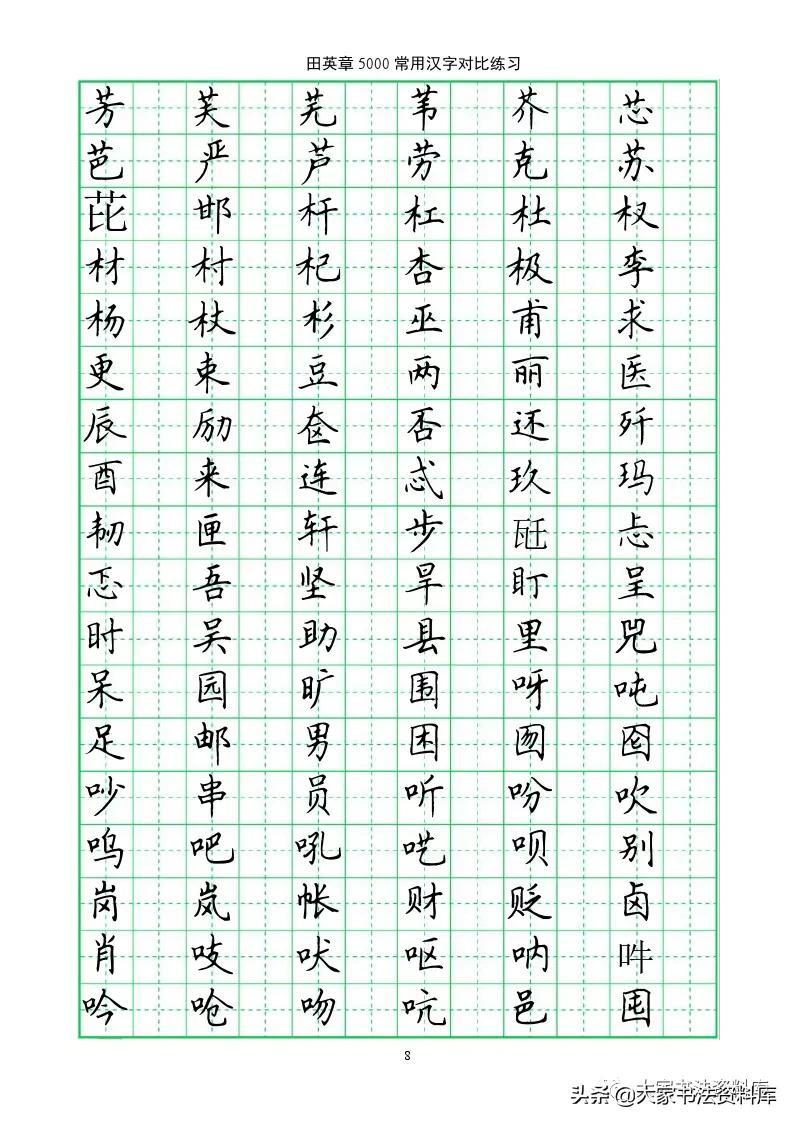 田英章5000常用汉字对比练习
芳 芙 芜 苇 芥 芯
芭 严 芦 劳 克 苏
芘 邯 杆 杠 杜 杈
材 村 杞 杏 极 李
杨 杖 杉 巫 甫 求
更 束 豆 两 丽 医
辰 励 奁 否 还 歼
酉 来 连 忒 玖 玛
韧 匣 轩 步 瓩 忐
忑 吾 坚 旱 盯 呈
时 吴 助 县 里 兕
呆 园 旷 围 呀 吨
足 邮 男 困 囫 囵
吵 串 员 听 吩 吹
呜 吧 吼 呓 呗 别
岗 岚 帐 财 贬 卤
肖 吱 吠 呕 呐 吽
吟 呛 吻 吭 邑 囤
8
头条@大家书法资料库